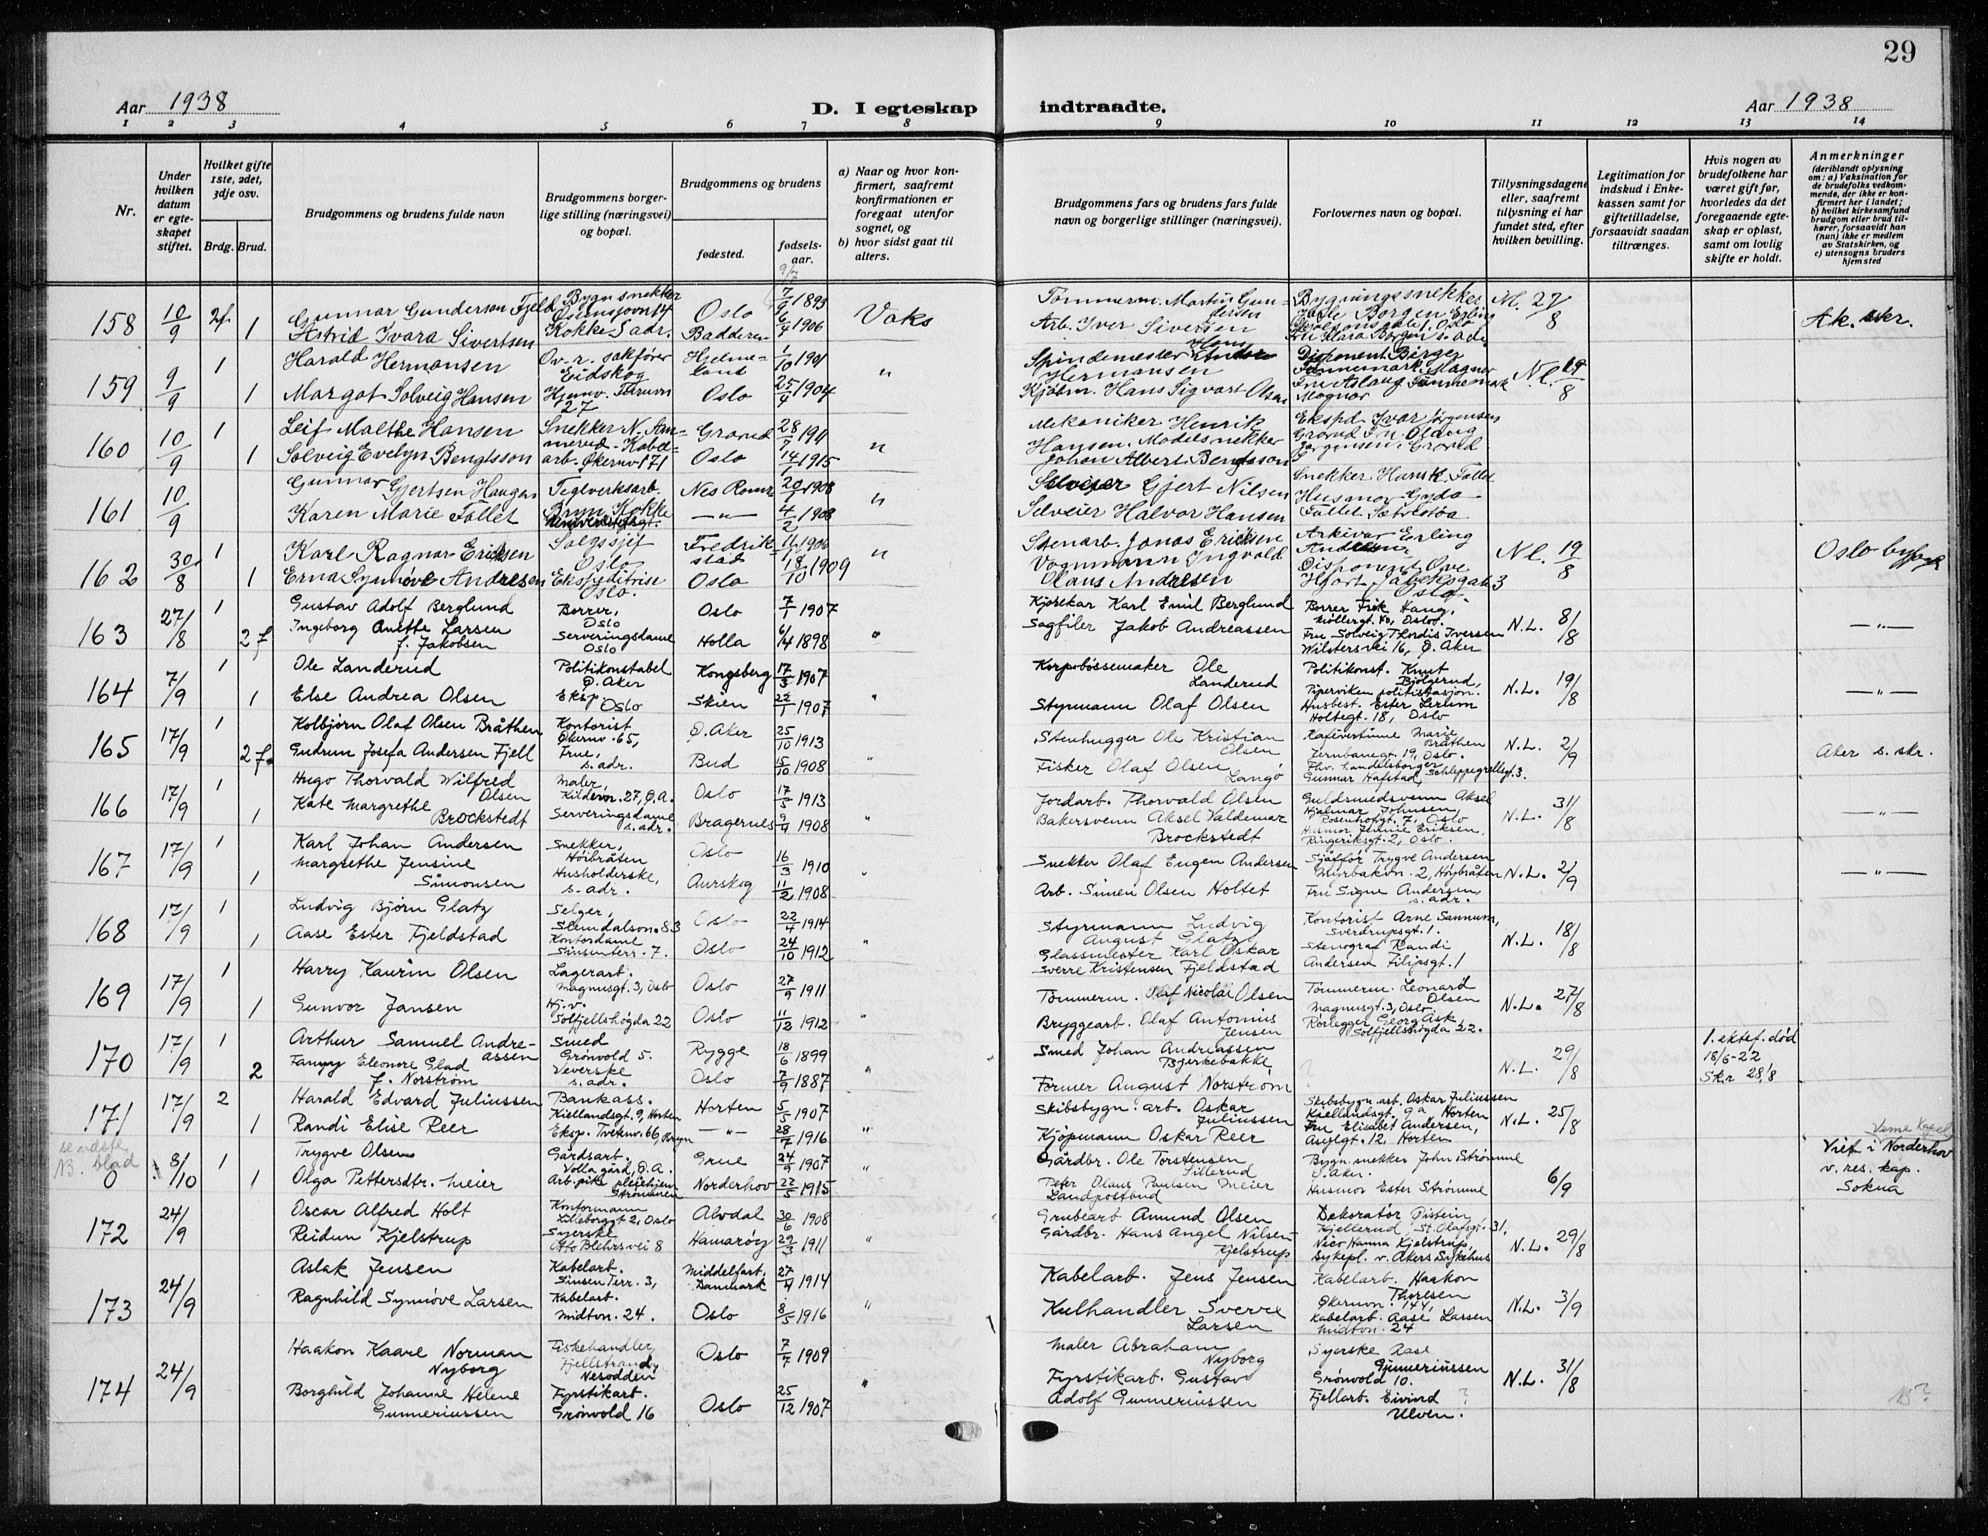 29
Aar 1938
D. I egteskap indtraadte.
Aar 1938
1 2 3 4 5 6 7 8 9 10 11 12 13 14
Nr.
Under hvilken datum er egteskapet stiftet.
Hvilket gifte 1ste, 2det, 3dje osv.
Brdg. Brud.
Brudgommens og brudens fulde navn
Brudgommens borgerlige stilling (næringsvei) og bopæl.
Brudgommens og brudens
fødested.
fødselsaar.
a) Naar og hvor konfirmert, saafremt konfirmationen er foregaat utenfor sognet, og
b) hvor sidst gaat til alters.
Brudgommens fars og brudens fars fulde navn og borgerlige stillinger (næringsvei).
Forlovernes navn og bopæl.
Tillysningsdagene eller, saafremt tillysning ei har fundet sted, efter hvilken bevilling.
Legitimation for indskud i Enkekassen samt for giftetilladelse, forsaavidt saadan tiltrænges.
Hvis nogen av brudefolkene har været gift før, hvorledes da det foregaaende egteskap er opløst, samt om lovlig skifte er holdt.
Anmerkninger (deriblandt oplysning om: a) Vaksination for de brudefolks vedkommende, der ikke er konfirmert her i landet; b) hvilket kirkesamfund brudgom eller brud tilhører, forsaavidt han (hun) ikke er medlem av Statskirken, og c) utensogns bruders hjemsted
158 10/9 2f. 1
Gunnar Gunderson Fjeld
Astrid Ivara Sivertsen
Bygn snekker
Kokke S. adr.
Oslo 1893
Badderen 1906
Vaks
Tømmerm. Martin Gundersen
Arb. Iver Siversen
Bygningssnekker
27/8
Ak. skr.
159 9/9 1 1
Harald Hermansen
Margot Solveig Hansen
Ov.r. sakfører
Eidskog
Hjelmeland 1/10 1901
Oslo 25/9 1904
"
Spindemester Hans
Hermansen
Kjøbm. Hans Sigvart Olsen
Disponent Birger
Magnor
N.L. 19/8
160 10/9 1 1
Leif Malthe Hansen
Solveig Evelyn Bengtsson
Snekker N. Ammerud. Kabelarb. Økernv 171
Grorud 28/5 1911
Oslo 14/1 1915
"
Mekaniker Henrik
Hansen. Modelsnekker
Johan Albert Bengtsson
Ekspd. Ivar Jørgensen
Grorud Frk. Olaug
Jørgensen, Grorud
161 10/9
Gunnar Gjertsen Haugen
Karen Marie Fallet
Teglverksarb.
Bryn Kokke
Nes Romr 20/1 1908
— " — 4/2 1908
"
Selveier Gjert Nilsen
Selveier Halvor Hansen
Snekker Hans K. Fallet
Husmor Gyda
Fallet
162 30/8 1 1
Karl Ragnar Ericksen
Erna Synnøve Andresen
Salgssjef
Oslo
Ekspeditrise
Oslo.
Fredrikstad 11/1 1906
Oslo 18/10 1909
"
Stenarb. Jonas Ericksen
Vognmann Ingvald
Olaus Andresen
Arkivar Erling
Andresen
Disponent Ove
Hjort
Oslo
N.L. 19/8
Oslo byfogd
163 27/8 1 2f
Gustav Adolf Berglund
Ingeborg Anette Larsen
f. Jakobsen
Borrer,
Oslo
Serveringsdame
Oslo
Oslo 7/1 1907
Holla 6/4 1898
"
Kjørekar Karl Emil Berglund
Sagfiler Jakob Andreassen
Borrer Frik Haug,
Møllergt. Oslo.
Fru Solveig Thordis Iversen
Wilstersvei 16, Ø. Aker
N.L. 8/8
— " —
164 7/9 1 1
Ole Landerud
Else Andrea Olsen
Politikonstabel
Ø. Aker
Eksp.
Oslo
Kongsberg 17/3 1907
Skien 22/1 1907
"
Korpsbøssemaker Ole
Landerud
Styrmann Olaf Olsen
Politikonst. Knut
Bjølgerud,
Piperviken politistasjon.
Husbest. Ester Lerum
Holtegt. 18, Oslo
N.L. 19/8
— " —
165 17/9 1 2f.
Kolbjørn Olaf Olsen Bråthen
Gudrun Josefa Andersen Fjell
Kontorist
Økernv. 65,
Frue,
s. adr.
Ø. Aker 25/10 1913
Bud 5/10 1908
"
Stenhugger Ole Kristian
Olsen
Fisker Olaf Olsen
Langø
Kafévertinne Marie
Bråthen
Jernbanegt. 19, Oslo.
Fhv. handelsborger
Gunnar Hafstad, Schleppegrellsgt. 3.
N.L. 2/9
Aker s. skr.
166 17/9 1 1
Hugo Thorvald Wilfred
Olsen
Kate Margrethe
Brockstedt
Maler,
Kildernv. 27, Ø.A.
Serveringsdame
s. adr.
Oslo 17/5 1913
Bragernes 9/9 1908
"
Jordarb. Thorvald Olsen
Bakersvenn Aksel Valdemar
Brockstedt
Guldsmedsvenn Aksel
Hjalmar Johnsen,
Rosenhofgt. 7, Oslo
Husmor Jennie Eriksen,
Ringeriksgt. 2, Oslo.
N.L. 31/8
— " —
167 17/9 1 1
Karl Johan Andersen
Margrethe Jensine
Simonsen
Snekker,
Høibråten
Husholderske,
s. adr.
Oslo 16/3 1910
Aurskog 11/2 1908
"
Snekker Olaf Eugen Andersen
Arb. Simen Olsen Holtet
Sjåffør Trygve Andersen
Murbakvn. 2, Høybråten
Fru Signe Andersen,
s. adr.
N.L. 2/9
— " —
168 17/9 1 1
Ludvig Bjørn Glatz
Aase Ester Fjeldstad
Selger,
Kontordame
Sinsenterr. 7.
Oslo 22/4 1914
Oslo 24/10 1912
"
Styrmann Ludvig
August Glatz
Glassmester Karl Oskar
Sverre Kristensen Fjeldstad
Kontorist Arne Sannum,
Sverdrupsgt. 1.
Stenograf Randi
Andersen Filipsgt. 1
N.L. 18/8
169 17/9 1 1
Harry Kaurin Olsen
Gunvor Jansen
Lagerarb.
Magnusgt. 3, Oslo
Hj.v.
Solfjellshøgda 22
Oslo 27/9 1911
Oslo 11/12 1912
"
Tømmerm. Olaf Nicolai Olsen
Bryggearb. Olaf Antonius
Jensen
Tømmerm. Leonard
Olsen
Magnusgt. 3, Oslo,
Rørlegger Georg Ask,
Solfjellshøgda 22.
N.L. 27/8
170 17/9 1 2
Arthur Samuel Andreassen
Fanny Eleonore Glad
f. Norstrøm
Smed
Grønvold 5.
Veverske
s. adr.
Rygge 18/6 1899
Oslo 7/9 1887
"
Smed Johan Andreassen
Bjerkebakke,
Former August Norstrøm
?
N.L. 29/8
1. ektef. død
18/6-22
Skr 28/8
171 17/9 2 1
Harald Edvard Juliussen
Randi Elise Reer
Bankass.
Kiellandsgt. 9, Horten
Eksp. Tvetenv. 66, Bryn
Horten 5/5 1907
— " — 28/7 1916
"
Skibsbygn. arb. Oskar
Juliussen
Kjøpmann Oskar Reer
Skibsbygn. arb. Oskar Juliussen
Kiellandsgt. 9a Horten
Fru Elisabet Andersen,
Asylgt. 12, Horten
N.L. 25/8
se næste
N.B. blad
0 8/10 1 1
Trygve Olsen
Olga Pettersdtr. Meier
Gårdsarb.
Volla gård, Ø.A.
Arb. pike pleiehjem
Strømmen
Grue 24/9 1907
Norderhov 22/5 1915
"
Gårdbr. Ole Torstensen
Sillerud
Peter Olaus Paulsen Meier
Landpostbud
Bygn. snekker John Strømme
Ø. Aker.
Husmor Ester Strømme
6/9
Veme Kapel
Viet i Norderhov
v. res. kap.
Sokna
172 24/9
Oscar Alfred Holt
Reidun Kjelstrup
Kontormann
Lilleborggt 2, Oslo
Syerske
Otto Blehrsvei 8
Alvdal 30/6 1908
Hamarøy 29/3 1911
"
Grubearb Amund Olsen
Gårdbr. Hans Angel Nilsen
Kjelstrup
Dekoratør Øistein
Kjellerud St. Olafsgt. 31,
Nico Hanna Kjelstrup,
Sykepl. v. Akers Sykehus
N.L. 29/8
173 24/9
Aslak Jensen
Ragnhild Synnøve Larsen
Kabelarb.
Sinsen Terr. 3,
Kabelarb.
Midtvn. 24.
Middelfart. Danmark 27/4 1914
Oslo 8/5 1916
"
Kabelarb. Jens Jensen
Kulhandler Sverre
Larsen
Kabelarb. Haakon
Thoresen
Økernvn. 144,
Kabelarb. Aase Larsen
Midtvn. 24
N.L. 3/9
174 24/9
Haakon Kaare Norman
Nyborg
Borghild Johanne Helene
Gunneriussen
Fiskehandler,
Fjellstrand,
Nesodden
Fyrstikarb.
Grønvold 16
Oslo 7/7 1909
Oslo 25/12 1907
"
Maler Abraham
Nyborg
Fyrstikarb. Gustav
Adolf Gunneriussen
Syerske Aase
Gunneriussen
Grønvold 10.
Fjellarb. Eivind ?
Ulven.
N.L. 31/8